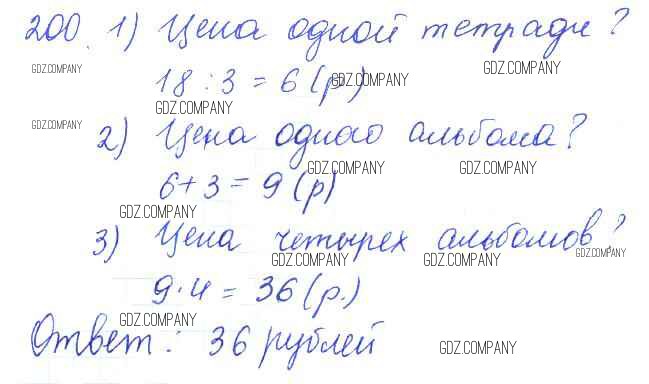 200. 1) Цена одной тетради?
18 : 3 = 6 (р.)
2) Цена одного альбома?
6 + 3 = 9 (р)
3) Цена четырех альбомов?
9 · 4 = 36 (р.)
Ответ: 36 рублей
GDZ.COMPANY
GDZ.COMPANY
GDZ.COMPANY
GDZ.COMPANY
GDZ.COMPANY
GDZ.COMPANY
GDZ.COMPANY
GDZ.COMPANY
GDZ.COMPANY
GDZ.COMPANY
GDZ.COMPANY
GDZ.COMPANY
GDZ.COMPANY